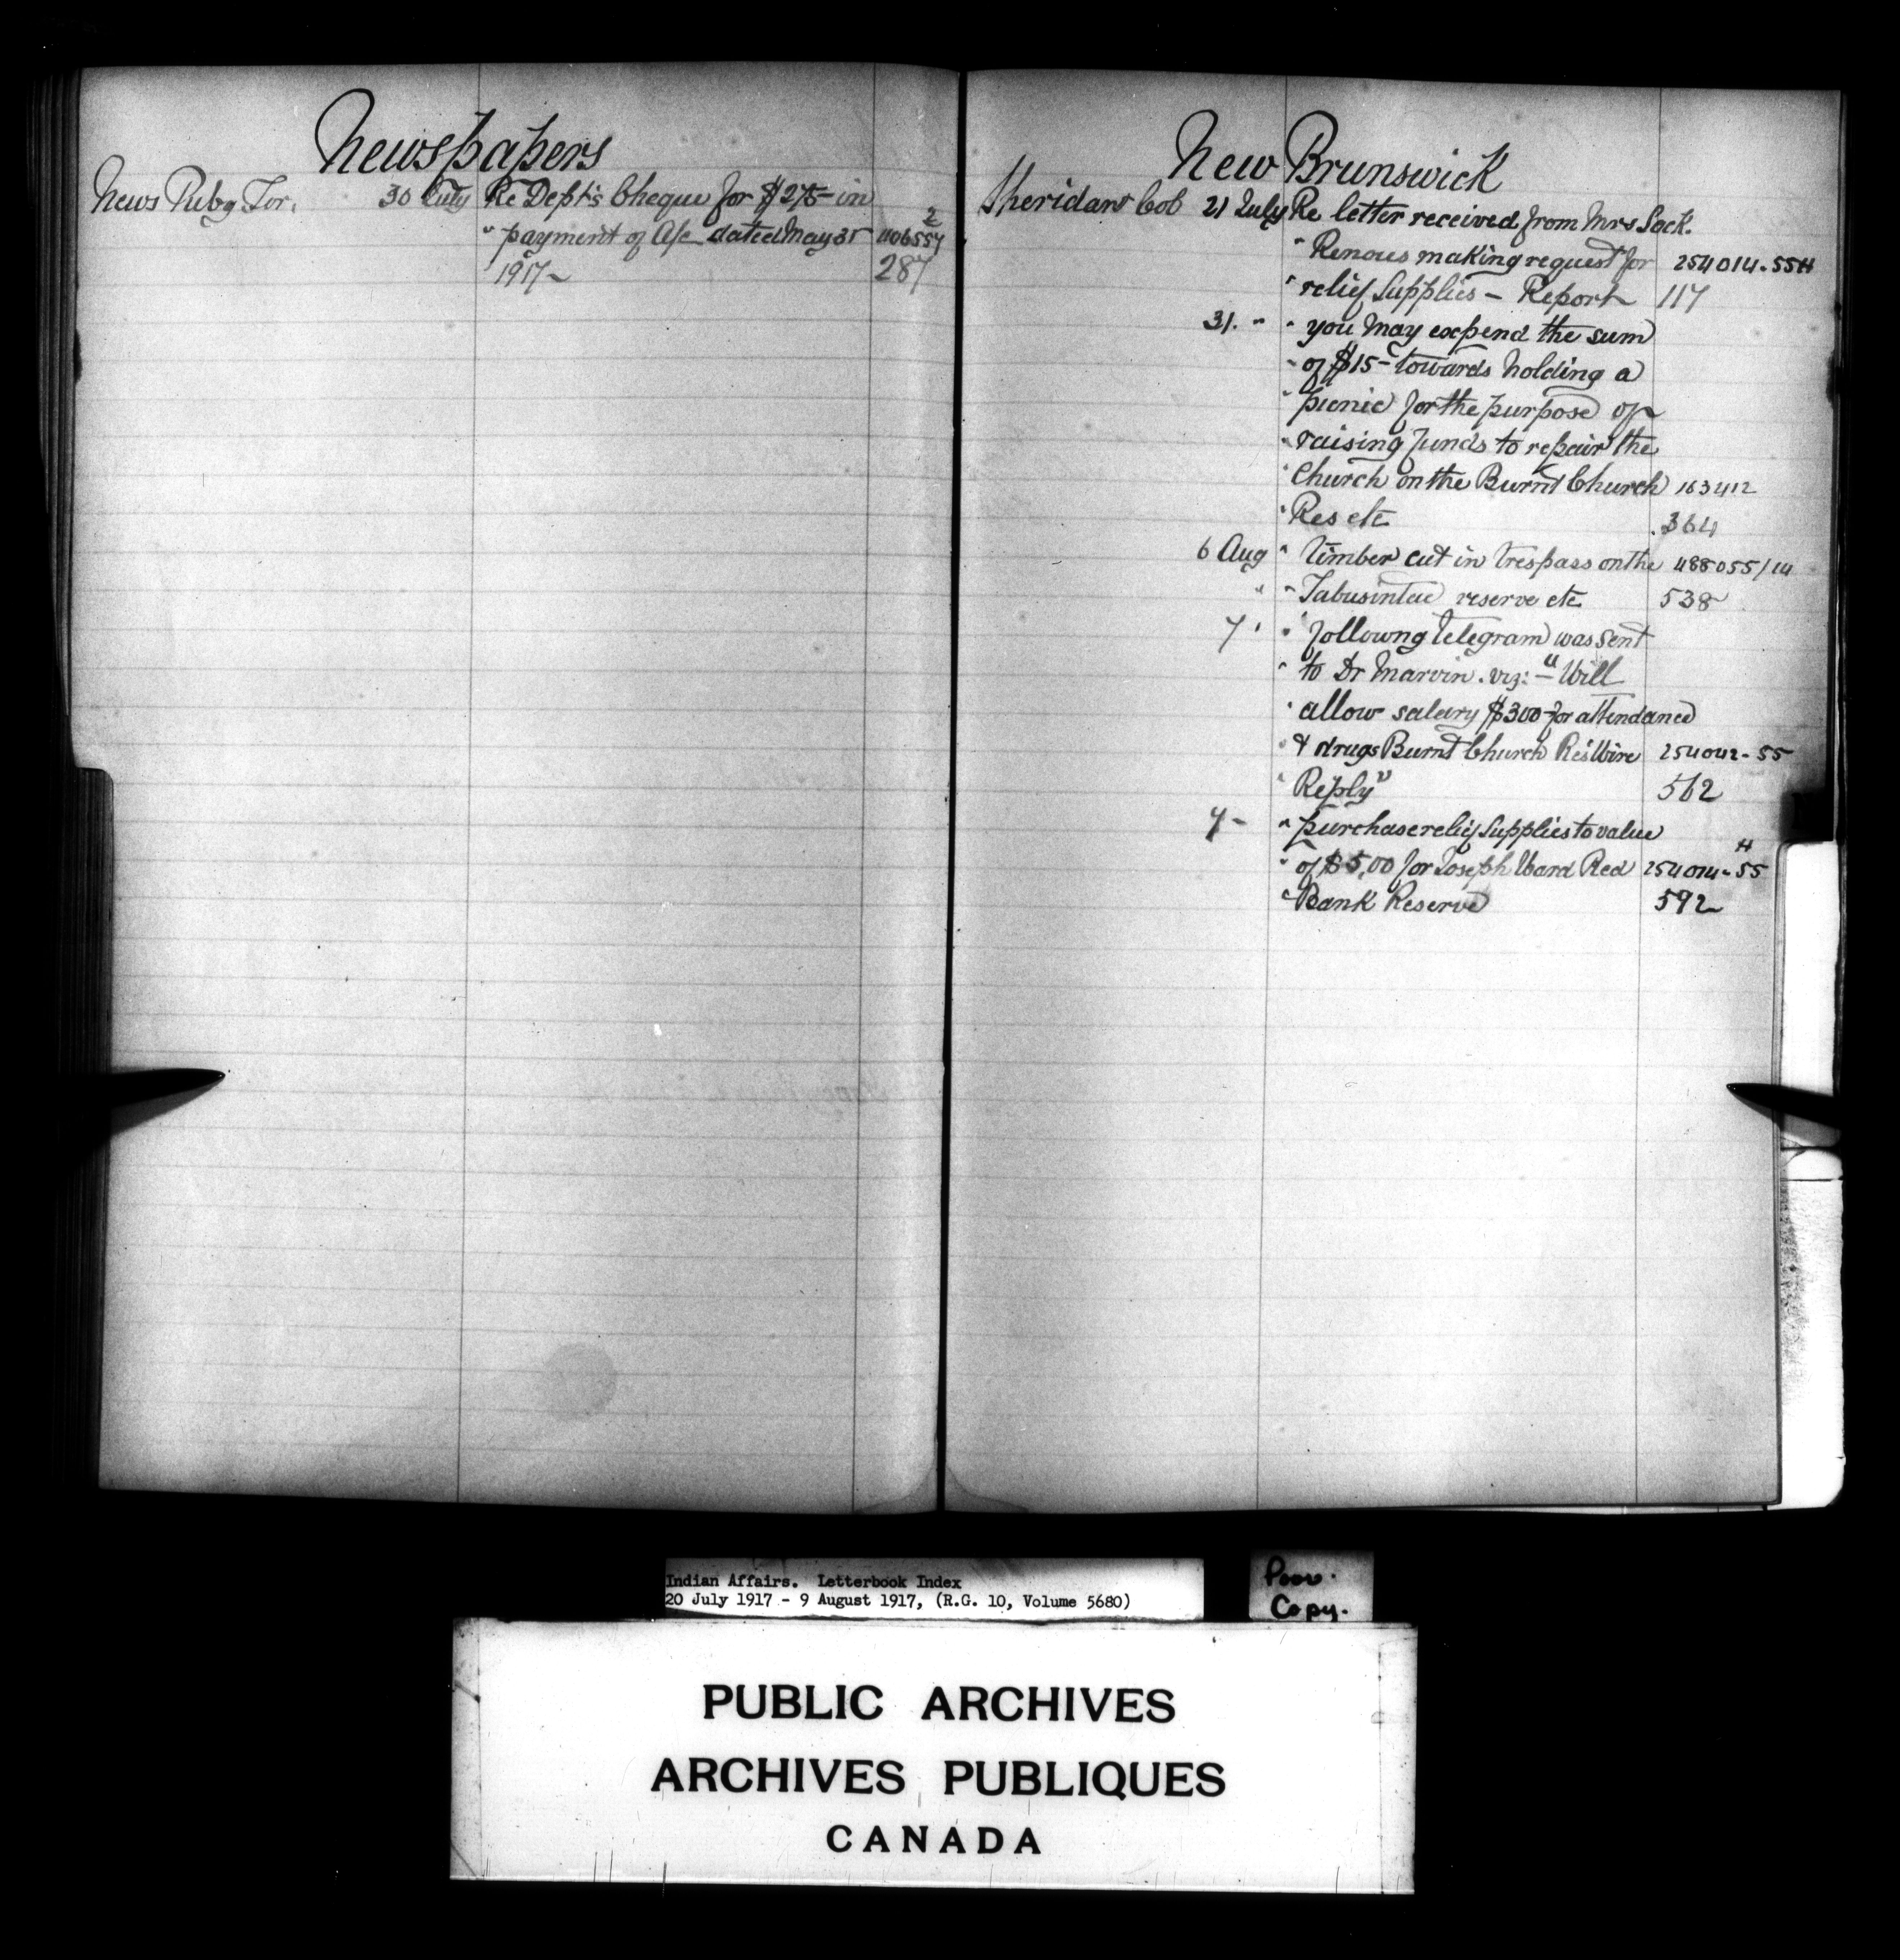 Newspapers
News Pubg Tor. 30 July Re Dept's Cheque for $275 in
" payment of A/c dated May 31 406557 2
1917 287
New Brunswick
Sheridan Cob 21 July Re letter received from Mrs Sack.
" Renous making request for 254014-55H
" relief supplies - Report 117
31. " " you may expend the sum
" of $15- towards holding a
" picnic for the purpose of
" raising funds to repair the
" Church on the Burnt Church 163412
" Res etc 364
6 Aug " Timber cut in trespass on the 488055/14
" " Tabusintac reserve etc 538
7 " " followng telegram was sent
" to Dr Marvin. viz: - "Will
" allow salary $300- for attendance
" & drugs Burnt Church Res Wire 254042-55
" Reply" 562
7 - " purchase relief supplies to value
" of $5.00 for Joseph Ward Red 254014-55 H
" Bank Reserve 592
Indian Affairs. Letterbook Index
20 July 1917 - 9 August 1917, (R.G. 10, Volume 5680)
Poor.
Copy.
PUBLIC ARCHIVES
ARCHIVES PUBLIQUES
CANADA